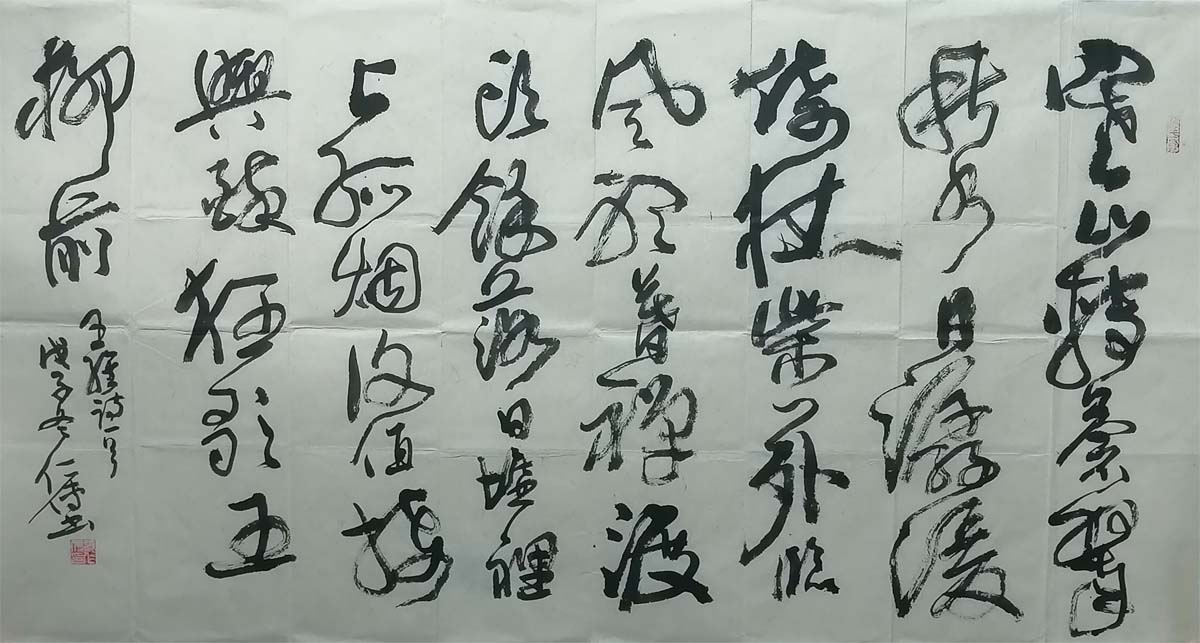 寒山轉蒼翠
秋水日潺湲
倚杖柴門外臨
風聽暮蟬渡
頭餘落日墟裡
上孤烟復值接
輿醉狂歌五
柳前
王維詩一首
戊子冬 书